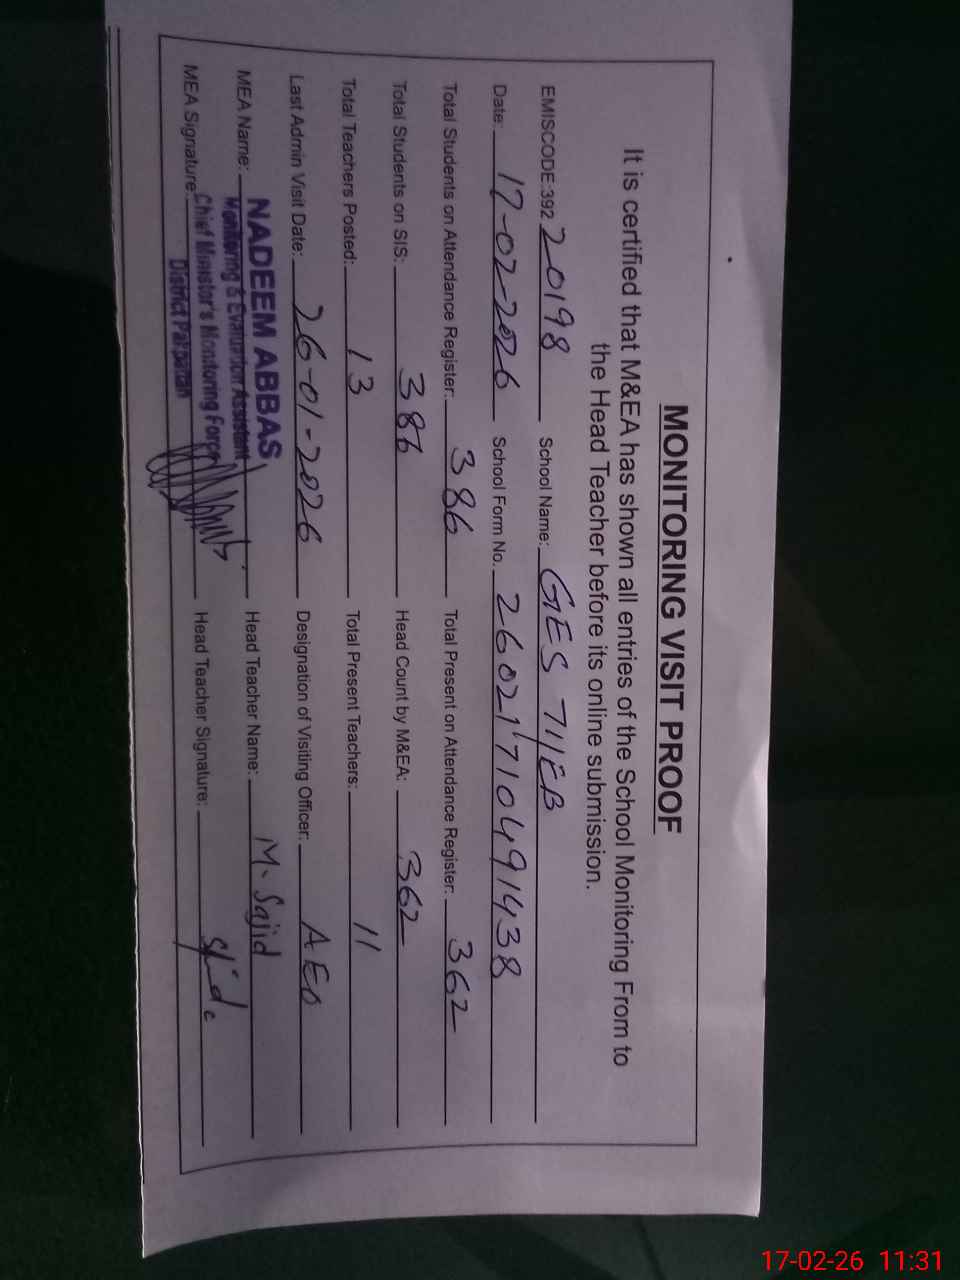 MONITORING VISIT PROOF
It is certified that M&EA has shown all entries of the School Monitoring From to
the Head Teacher before its online submission.
EMISCODE:392 20198 School Name: GES 71/EB
Date: 17-02-2026 School Form No. 26021710491438
Total Students on Attendance Register: 386 Total Present on Attendance Register: 362
Total Students on SIS: 386 Head Count by M&EA: 362
Total Teachers Posted: 13 Total Present Teachers: 11
Last Admin Visit Date: 26-01-2026 Designation of Visiting Officer: AEO
MEA Name: NADEEM ABBAS Head Teacher Name: M. Sajid
Monitoring & Evaluation Assistant
MEA Signature: Chief Minister's Monitoring Force Head Teacher Signature:
District Pakpattan
17-02-26 11:31